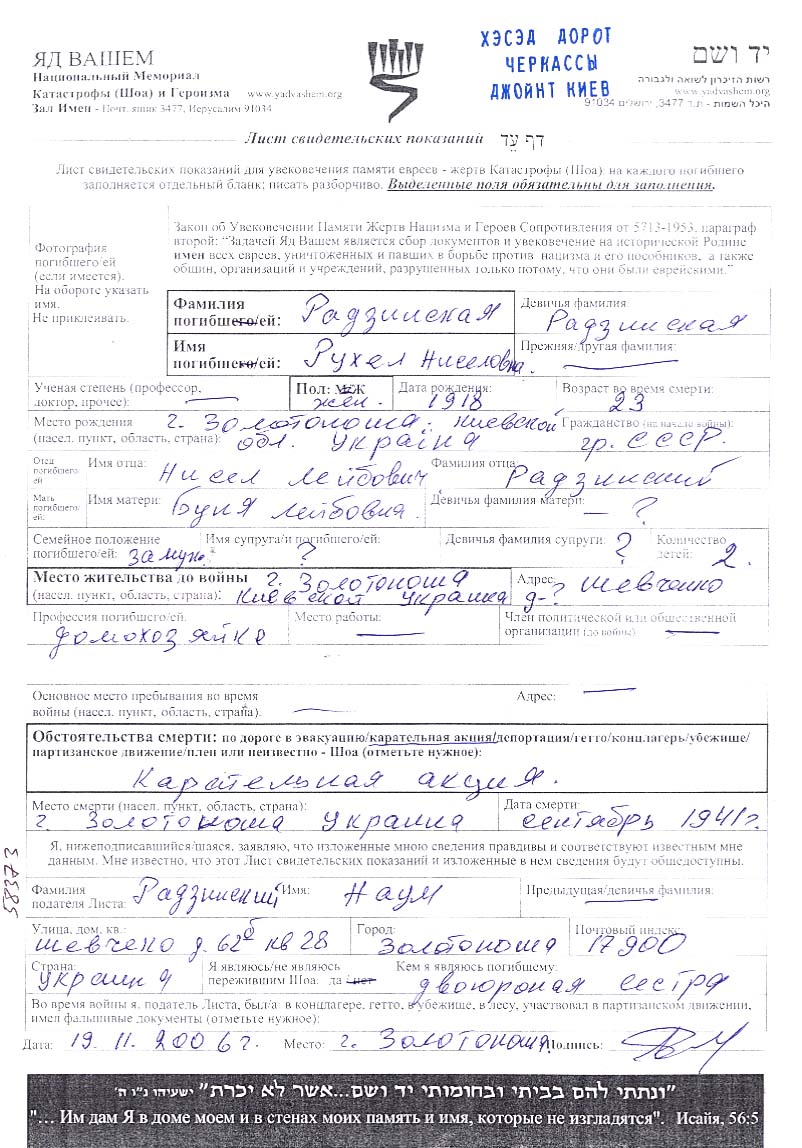 ЯД ВАШЕМ
Национальный Мемориал
Катастрофы (Шоа) и Героизма www.yadvashem.org
Зал Имен - Почт. ящик 3477, Иерусалим 91034
ХЭСЭД ДОРОТ
ЧЕРКАССЫ
ДЖОЙНТ КИЕВ
יד ושם
רשות הזיכרון לשואה ולגבורה
www.yadvashem.org
היכל השמות - ת.ד 3477, ירושלים 91034
Лист свидетельских показаний דף עֵד
Лист свидетельских показаний для увековечения памяти евреев - жертв Катастрофы (Шоа): на каждого погибшего
заполняется отдельный бланк; писать разборчиво. Выделенные поля обязательны для заполнения.
Фотография
погибшего/ей
(если имеется).
На обороте указать
имя.
Не приклеивать.
Закон об Увековечении Памяти Жертв Нацизма и Героев Сопротивления от 5713-1953, параграф
второй: "Задачей Яд Вашем является сбор документов и увековечение на исторической Родине
имен всех евреев, уничтоженных и павших в борьбе против нацизма и его пособников, а также
общин, организаций и учреждений, разрушенных только потому, что они были еврейскими."
Фамилия погибшего/ей: Радзинская
Девичья фамилия: Радзинская
Имя погибшего/ей: Рухел Ниселовна.
Прежняя/другая фамилия: —
Ученая степень (профессор, доктор, прочее): —
Пол: М/Ж жен.
Дата рождения: 1918
Возраст во время смерти: 23
Место рождения г. Золотоноша. Киевской
(насел. пункт, область, страна): обл. Украïна
Гражданство (на начало войны): гр. СССР.
Отец погибшего/ей
Имя отца: Нисел Лейбович.
Фамилия отца: Радзинский
Мать погибшего/ей:
Имя матери: Буня Лейбовна.
Девичья фамилия матери: — ?
Семейное положение погибшего/ей: замуж.
Имя супруга/и погибшего/ей: ?
Девичья фамилия супруги: ?
Количество детей: 2.
Место жительства до войны г. Золотоноша
(насел. пункт, область, страна): Киевской Украина
Адрес: Шевченко
д-?
Профессия погибшего/ей: домохозяйка
Место работы: —
Член политической или общественной организации (до войны): —
Основное место пребывания во время
войны (насел. пункт, область, страна). —
Адрес: —
Обстоятельства смерти: по дороге в эвакуацию/карательная акция/депортация/гетто/концлагерь/убежище/
партизанское движение/плен или неизвестно - Шоа (отметьте нужное):
Карательная акция.
Место смерти (насел. пункт, область, страна):
г. Золотоноша Украина
Дата смерти:
сентябрь 1941 г.
Я, нижеподписавшийся/шаяся, заявляю, что изложенные мною сведения правдивы и соответствуют известным мне
данным. Мне известно, что этот Лист свидетельских показаний и изложенные в нем сведения будут общедоступны.
37385
Фамилия подателя Листа: Радзинский
Имя: Наум
Предыдущая/девичья фамилия: —
Улица, дом, кв.: Шевчено д. 62б кв 28
Город: Золотоноша
Почтовый индекс: 17900
Страна: Украина
Я являюсь/не являюсь пережившим Шоа: да / нет
Кем я являюсь погибшему: двоюроная сестра
Во время войны я, податель Листа, был/а: в концлагере, гетто, в убежище, в лесу, участвовал в партизанском движении,
имел фальшивые документы (отметьте нужное):
Дата: 19. 11. 2006 г. Место: г. Золотоноша Подпись:
"ונתתי להם בביתי ובחומותי יד ושם...אשר לא יכרת" ישעיהו נ"ו ה'
"... Им дам Я в доме моем и в стенах моих память и имя, которые не изгладятся". Исайя, 56:5